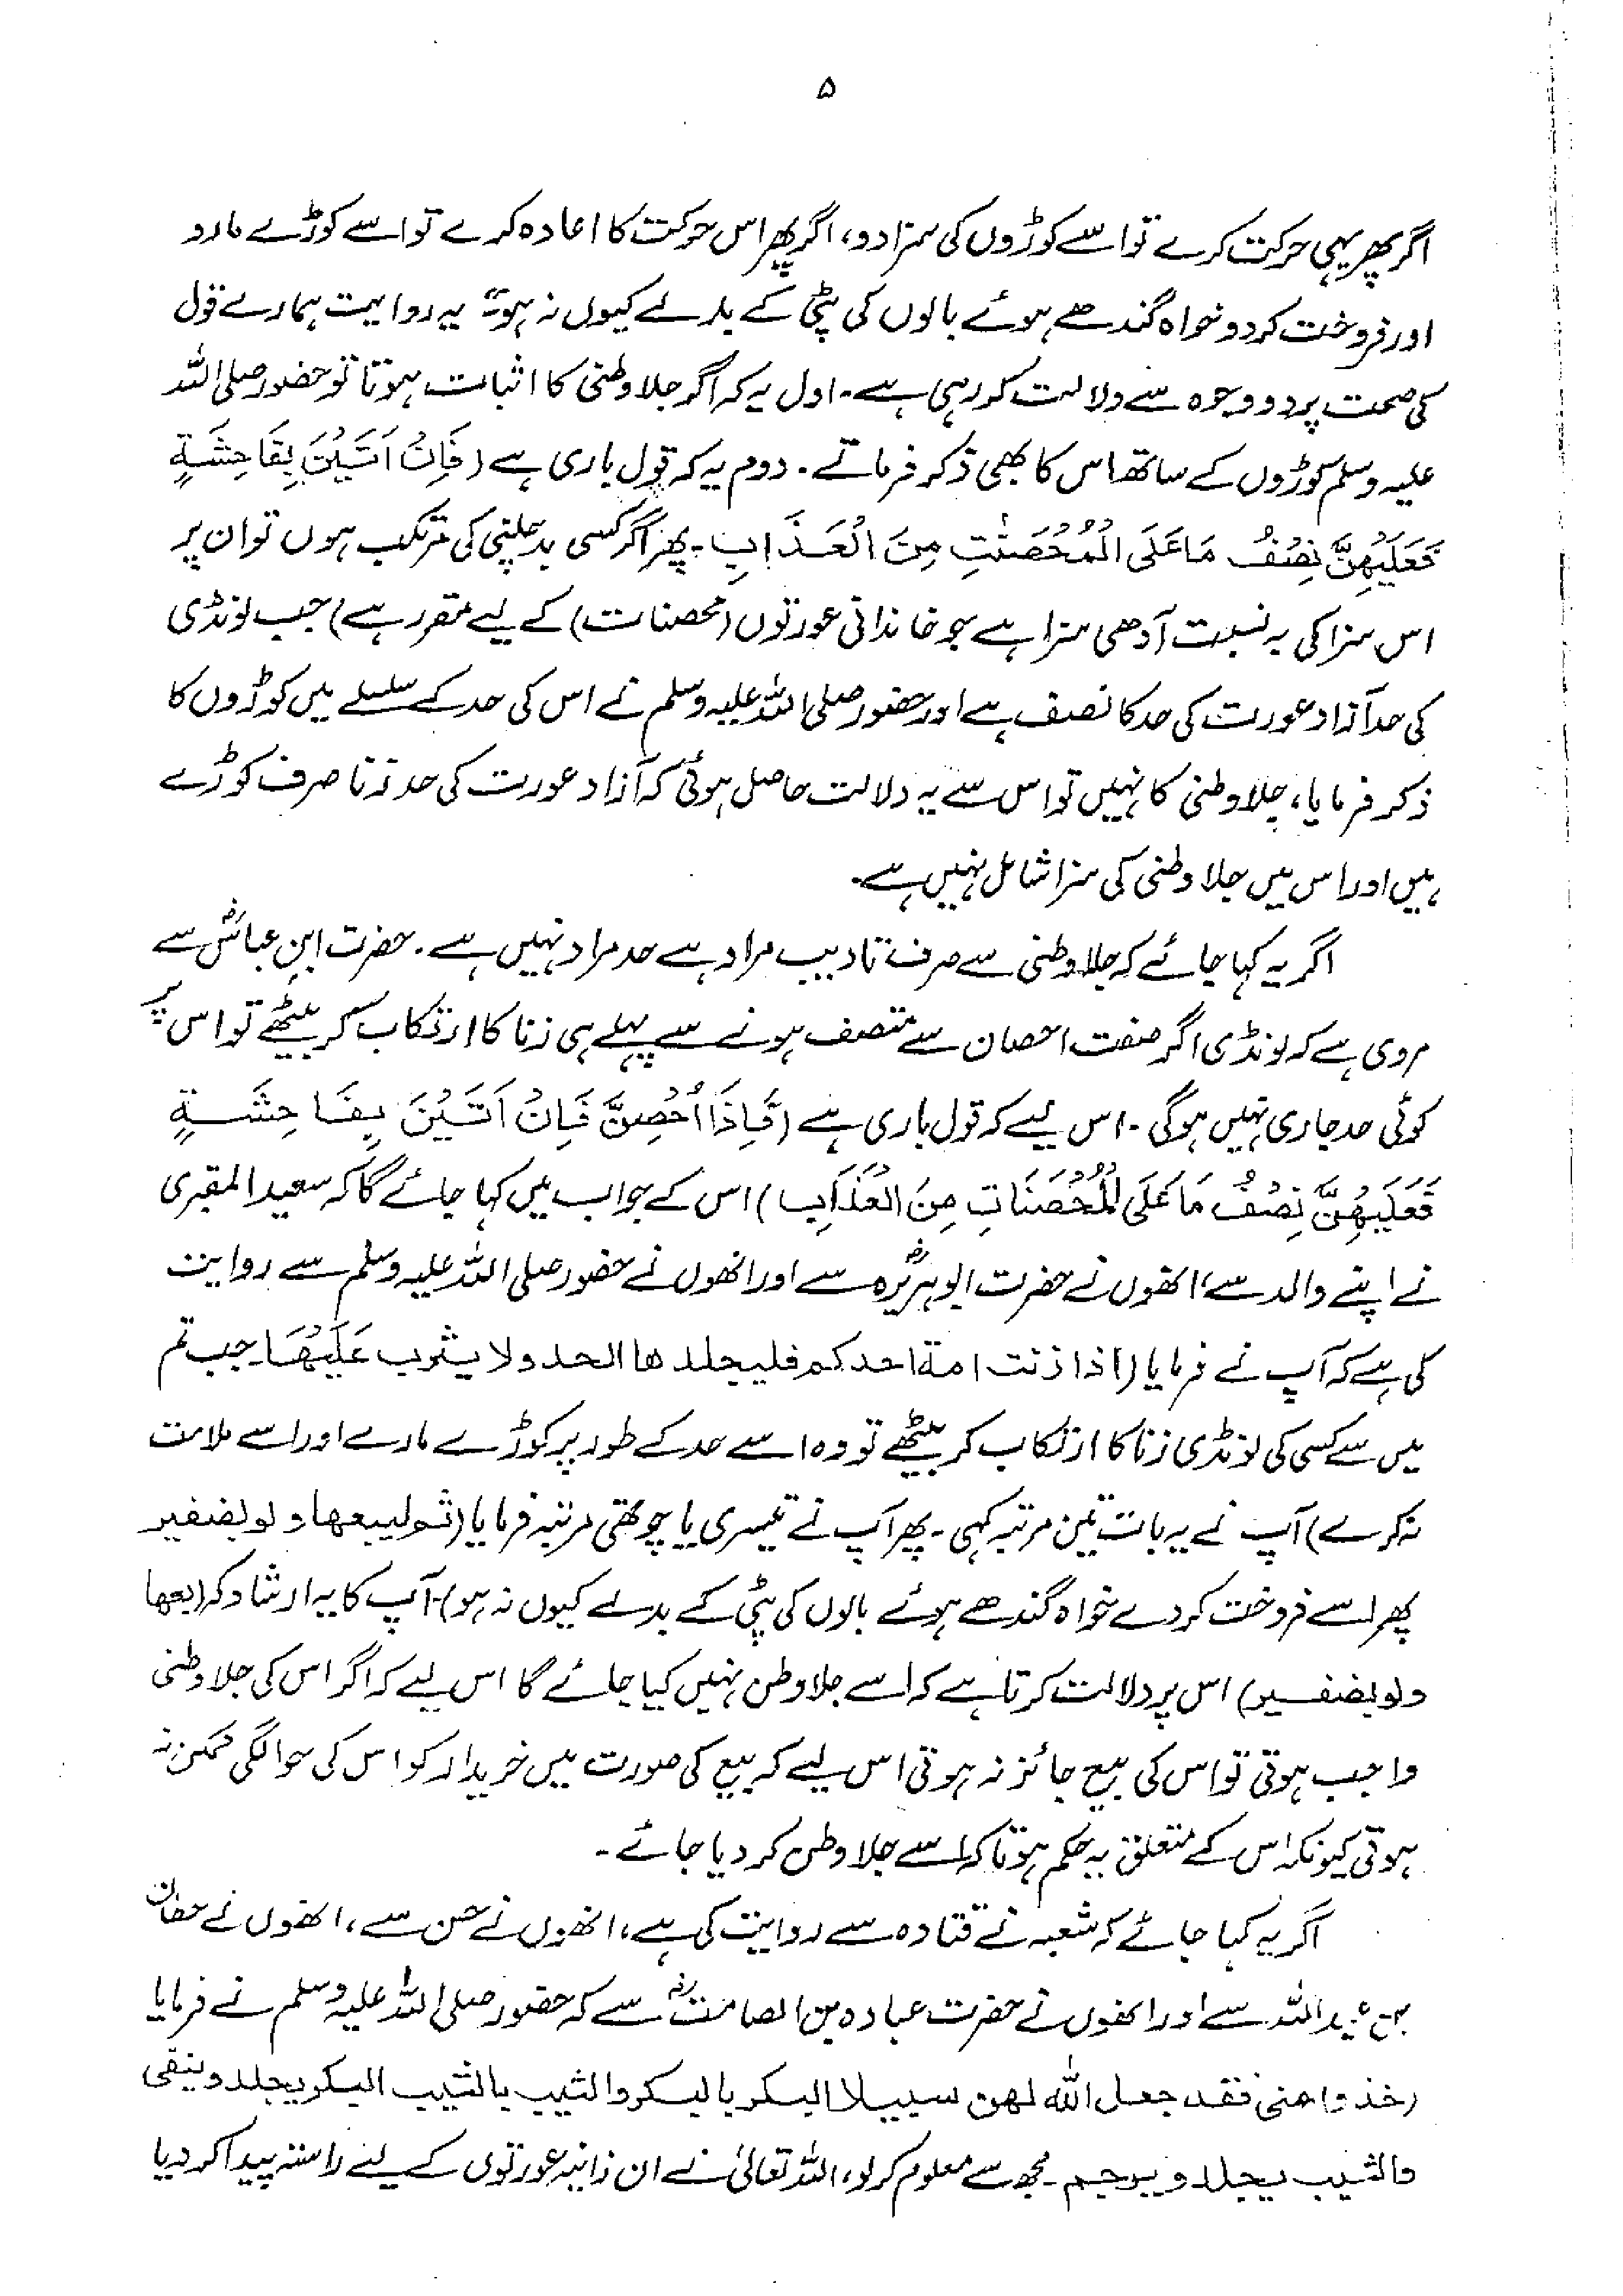 ۵
اگر پھر یہی حرکت کرے تو اسے کوڑوں کی سزا دو، اگر پھر اس حرکت کا اعادہ کرے تو اسے کوڑے مارو
اور فروخت کر دو خواہ گندھے ہوئے بالوں کی پٹی کے بدلے کیوں نہ ہو" یہ روایت ہمارے قول
کی صحت پر دو وجوہ سے دلالت کر رہی ہے۔ اول یہ کہ اگر جلا وطنی کا اثبات ہوتا تو حضور صلی اللہ
علیہ وسلم کوڑوں کے ساتھ اس کا بھی ذکر فرماتے۔ دوم یہ کہ قول باری ہے (فَاِنْ اَتَيْنَ بِفَاحِشَةٍ
فَعَلَيْهِنَّ نِصْفُ مَا عَلَى الْمُحْصَنٰتِ مِنَ الْعَذَابِ۔ پھر اگر کسی بدچلنی کی مرتکب ہوں تو ان پر
اس سزا کی بہ نسبت آدھی سزا ہے جو خاندانی عورتوں (محصنات) کے لیے مقرر ہے) جب لونڈی
کی حد آزاد عورت کی حد کا نصف ہے اور حضور صلی اللہ علیہ وسلم نے اس کی حد کے سلسلے میں کوڑوں کا
ذکر فرمایا، جلا وطنی کا نہیں تو اس سے یہ دلالت حاصل ہوئی کہ آزاد عورت کی حد زنا صرف کوڑے
ہیں اور اس میں جلا وطنی کی سزا شامل نہیں ہے۔
اگر یہ کہا جائے کہ جلا وطنی سے صرف تادیب مراد ہے حد مراد نہیں ہے۔ حضرت ابن عباسؓ سے
مروی ہے کہ لونڈی اگر صفت احصان سے متصف ہونے سے پہلے ہی زنا کا ارتکاب کر بیٹھے تو اس پر
کوئی حد جاری نہیں ہوگی۔ اس لیے کہ قول باری ہے (فَاِذَا اُحْصِنَّ فَاِنْ اَتَيْنَ بِفَاحِشَةٍ
فَعَلَيْهِنَّ نِصْفُ مَا عَلَى الْمُحْصَنَاتِ مِنَ الْعَذَابِ) اس کے جواب میں کہا جائے گا کہ سعید المقبری
نے اپنے والد سے، انھوں نے حضرت ابوہریرہؓ سے اور انھوں نے حضور صلی اللہ علیہ وسلم سے روایت
کی ہے کہ آپ نے فرمایا (اذا زنت امة احدكم فليجلدها الحد ولا يثرب عَلَيْهَا۔ جب تم
میں سے کسی کی لونڈی زنا کا ارتکاب کر بیٹھے تو وہ اسے حد کے طور پر کوڑے مارے اور اسے ملامت
نہ کرے) آپ نے یہ بات تین مرتبہ کہی۔ پھر آپ نے تیسری یا چوتھی مرتبہ فرمایا (ثم ليبعها ولو بضفير
پھر اسے فروخت کر دے خواہ گندھے ہوئے بالوں کی پٹی کے بدلے کیوں نہ ہو)۔ آپ کا یہ ارشاد کہ (بعها
ولو بضفير) اس پر دلالت کرتا ہے کہ اسے جلا وطن نہیں کیا جائے گا اس لیے کہ اگر اس کی جلا وطنی
واجب ہوتی تو اس کی بیع جائز نہ ہوتی اس لیے کہ بیع کی صورت میں خریدار کو اس کی حوالگی ممکن نہ
ہوتی کیونکہ اس کے متعلق یہ حکم ہوتا کہ اسے جلا وطن کر دیا جائے۔
اگر یہ کہا جائے کہ شعبہ نے قتادہ سے روایت کی ہے، انھوں نے حسن سے، انھوں نے حطان
بن عبداللہ سے اور انھوں نے حضرت عبادہ بن الصامتؓ سے کہ حضور صلی اللہ علیہ وسلم نے فرمایا
(خذوا عنى فقد جعل الله لهن سبيلا البكر بالبكر والثيب بالثيب البكر يجلد وينفى
والثيب يجلد ويرجم۔ مجھ سے معلوم کر لو، اللہ تعالیٰ نے ان زانیہ عورتوں کے لیے راستہ پیدا کر دیا